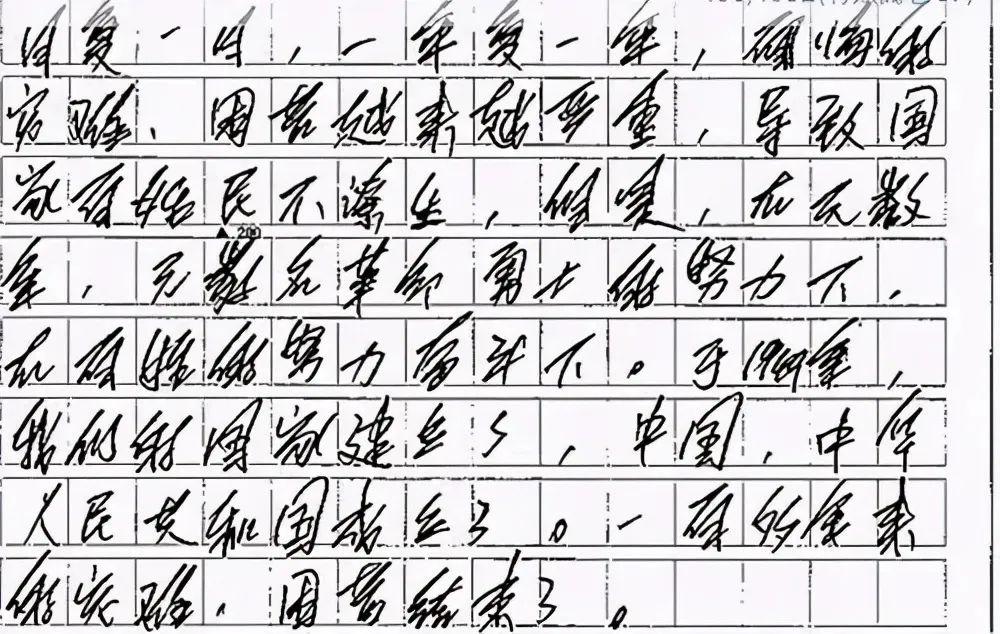 日复一日，一年复一年，
灾难、困苦越来越严重，导致国
家百姓民不潦生，但是，在无数
年，无数名革命勇士的努力下，
200
在百姓的努力奋斗下。于1949年，
我们的国家建立了，中国，中华
人民共和国成立了。一百多年来
的灾难、困苦结束了。